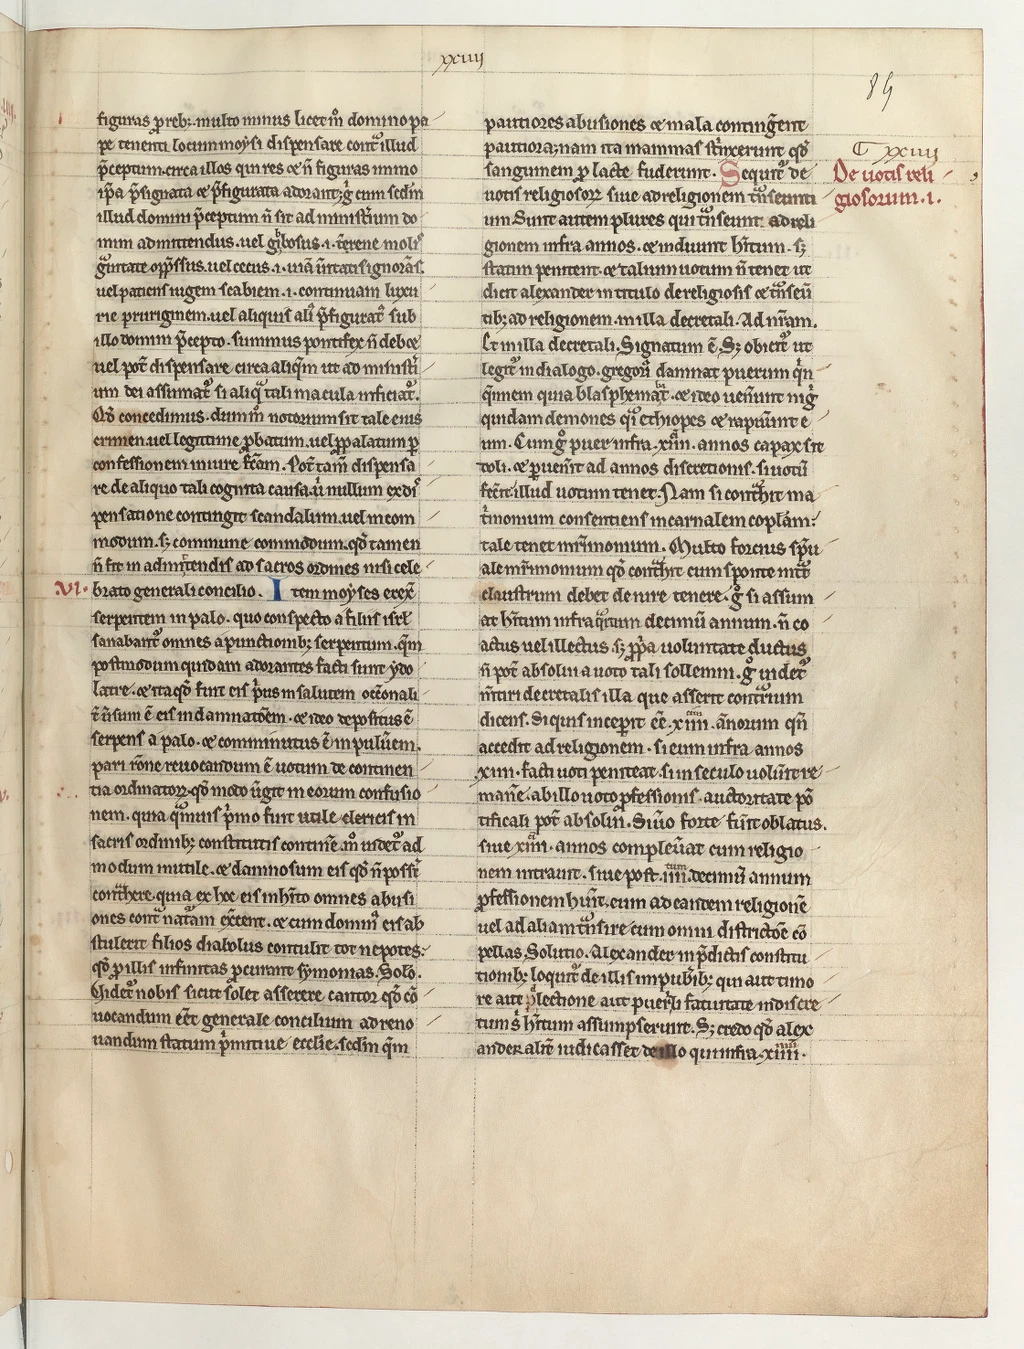 xxiiii
89
figuras p̄reb;. multo minus licet m̊ domino pa
pe tenenti locum moysi dispensare cont͛ illud
p̄ceptum. circa illos qui res ⁊ ñ figuras immo
ip̄a p̄signata ⁊ p̄figurata adorant; g̊ cum scd̄m
illud domini p̄ceptum ñ sit ad ministrium do
mini admittendus. uel gibbosus .i. t͛rene moli
ᵱssus. uel cecus .i. ignorās.
uel patiens iugem scabiem .i. continuam luxu
rie pruriginem. uel aliquis aliꝰ p̄figuratꝰ sub
illo domini p̄cepto. summus pontifex ñ debet
uel pot̄ dispensare circa aliq̄m ut ad ministͥ
um dei assumat͛ si aliqͣ tali macula inficiat͛.
Qd̄ concedimus. dum m̊ notorium sit tale eius
crimen. uel legitime ꝓbatum. uel ꝓpalatum ꝑ
confessionem in iure fc̄am. Pot̄ tam̄ dispensa
re de aliquo tali cognita causa. ū nullum ex di
pensatione contingit scandalum. uel incom
modum. s; commune commodum. qd̄ tamen
ñ fit in admittendis ad sacros ordines nisi cele
VI. brato generali concilio. Item moyses erex̄
serpentem in palo. quo conspecto a filiis isrl̄
sanabant͛ omnes a punctionib; serpentum. q̄m
postmodum quidam adorantes facti sunt ydo
latre. ⁊ ita qd̄ fuit eis pͥus in salutem occōnalit͛
ū̄sum ē eis in damnatōem. ⁊ ideo depositus ē
serpens a palo. ⁊ comminutus ē in pulu͛em.
pari rōne reuocandum ē uotum de continen
tia ordinatoꝝ. qd̄ modo u͛git in eorum confusio
nem. quia qͣmuis pͥmo fuit utile clericis in
sacris ordinib; constitutis contine͛. m̊ uidet͛ ad
modum inutile. ⁊ damnosum eis qd̄ ñ poss͛t
cont͛here. quia ex hoc eis inhīto omnes abusi
ones cont͛ nat͛am ex͛cent. ⁊ cum dominꝰ eis ab
stulerit filios diabolus contulit tot nepotes.
qd̄ ꝑ illis infinitas ꝓcurant symonias. Solō.
Uidet͛ nobis sicut solet asserere cantor qd̄ cō
uocandum eēt generale concilium ad reno
uandum statum pͥmitiue ecclie. scd̄m q̄m
pauciores abusiones ⁊ mala conting͛ent
pauciora; nam ita mammas stͥnxerunt qd̄
sanguinem ꝓ lacte fuderunt. Sequit͛ de
uotis religiosoꝝ siue ad religionem t͛nseunti
um Sunt autem plures qui t͛nseunt ad reli
gionem infra annos. ⁊ induunt hītum. s;
statim penitent ⁊ talium uotum ñ tenet ut
dicit alexander in titulo de religiosis ⁊ t͛nseū
tib; ad religionem. in illa decretali. Ad nr̄am.
Et in illa decretali. Signatum ē. S; obicit͛ ut
legit͛ in dialogo. gregoriꝰ damnat puerum q̄n
q̄nnem quia blasphemabat. ⁊ ideo uen͛unt nigͥ
quidam demones qͣi ethiopes ⁊ rapu͛unt e
um. Cum g̊ puer infra .xiiii. annos capax sit
doli. ⁊ ꝑuen͛it ad annos discretionis. si uotū
fec͛it illud uotum tenet. Nam si cont͛hit ma
tͥmonium consentiens in carnalem copl̄am:
tale tenet mr̄imonium. Multo forcius sp̄u
ale mr̄imonium qd̄ cont͛hit cum sponte intͣt
claustrum debet de iure tenere. g̊ si assum
at hītum infra qͣrtum decimū annum. ñ co
actus uel illectus. s; ꝓp̄a uoluntate ductus
ñ pot̄ absolui a uoto tali sollemni. g̊ uidet͛
m̄tiri decretalis illa que asserit contͣrium
dicens. Si quis incep͛it eē .xiiii. annorum qn̄
accedit ad religionem. si eum infra annos
.xiiii. facti uoti peniteat. si in seculo uolu͛it re
man͛e. ab illo uoto ꝓfessionis. auctoritate pō
tificali pot̄ absolui. Si ūo forte fu͛it oblatus.
siue xiiii. annos compleu͛at cum religio
nem intrauit. siue post .iiii. decimū annum
ꝓfessionem hūit. eum ad eandem religionē
uel ad aliam t͛nsire cum omni districtōe cō
pellas. Solutio. Alexander in p̄dictis constitu
tionib; loquit͛ de illis impub͛ib; qui aut timo
re aut illectione aut pueͥli fatuitate indiscre
tum hītum assumpserunt. S; credo qd̄ alex
ander alit͛ iudicasset de illo qui infra .xiiii.
C xxiiii
De uotis reli
giosorum .i.